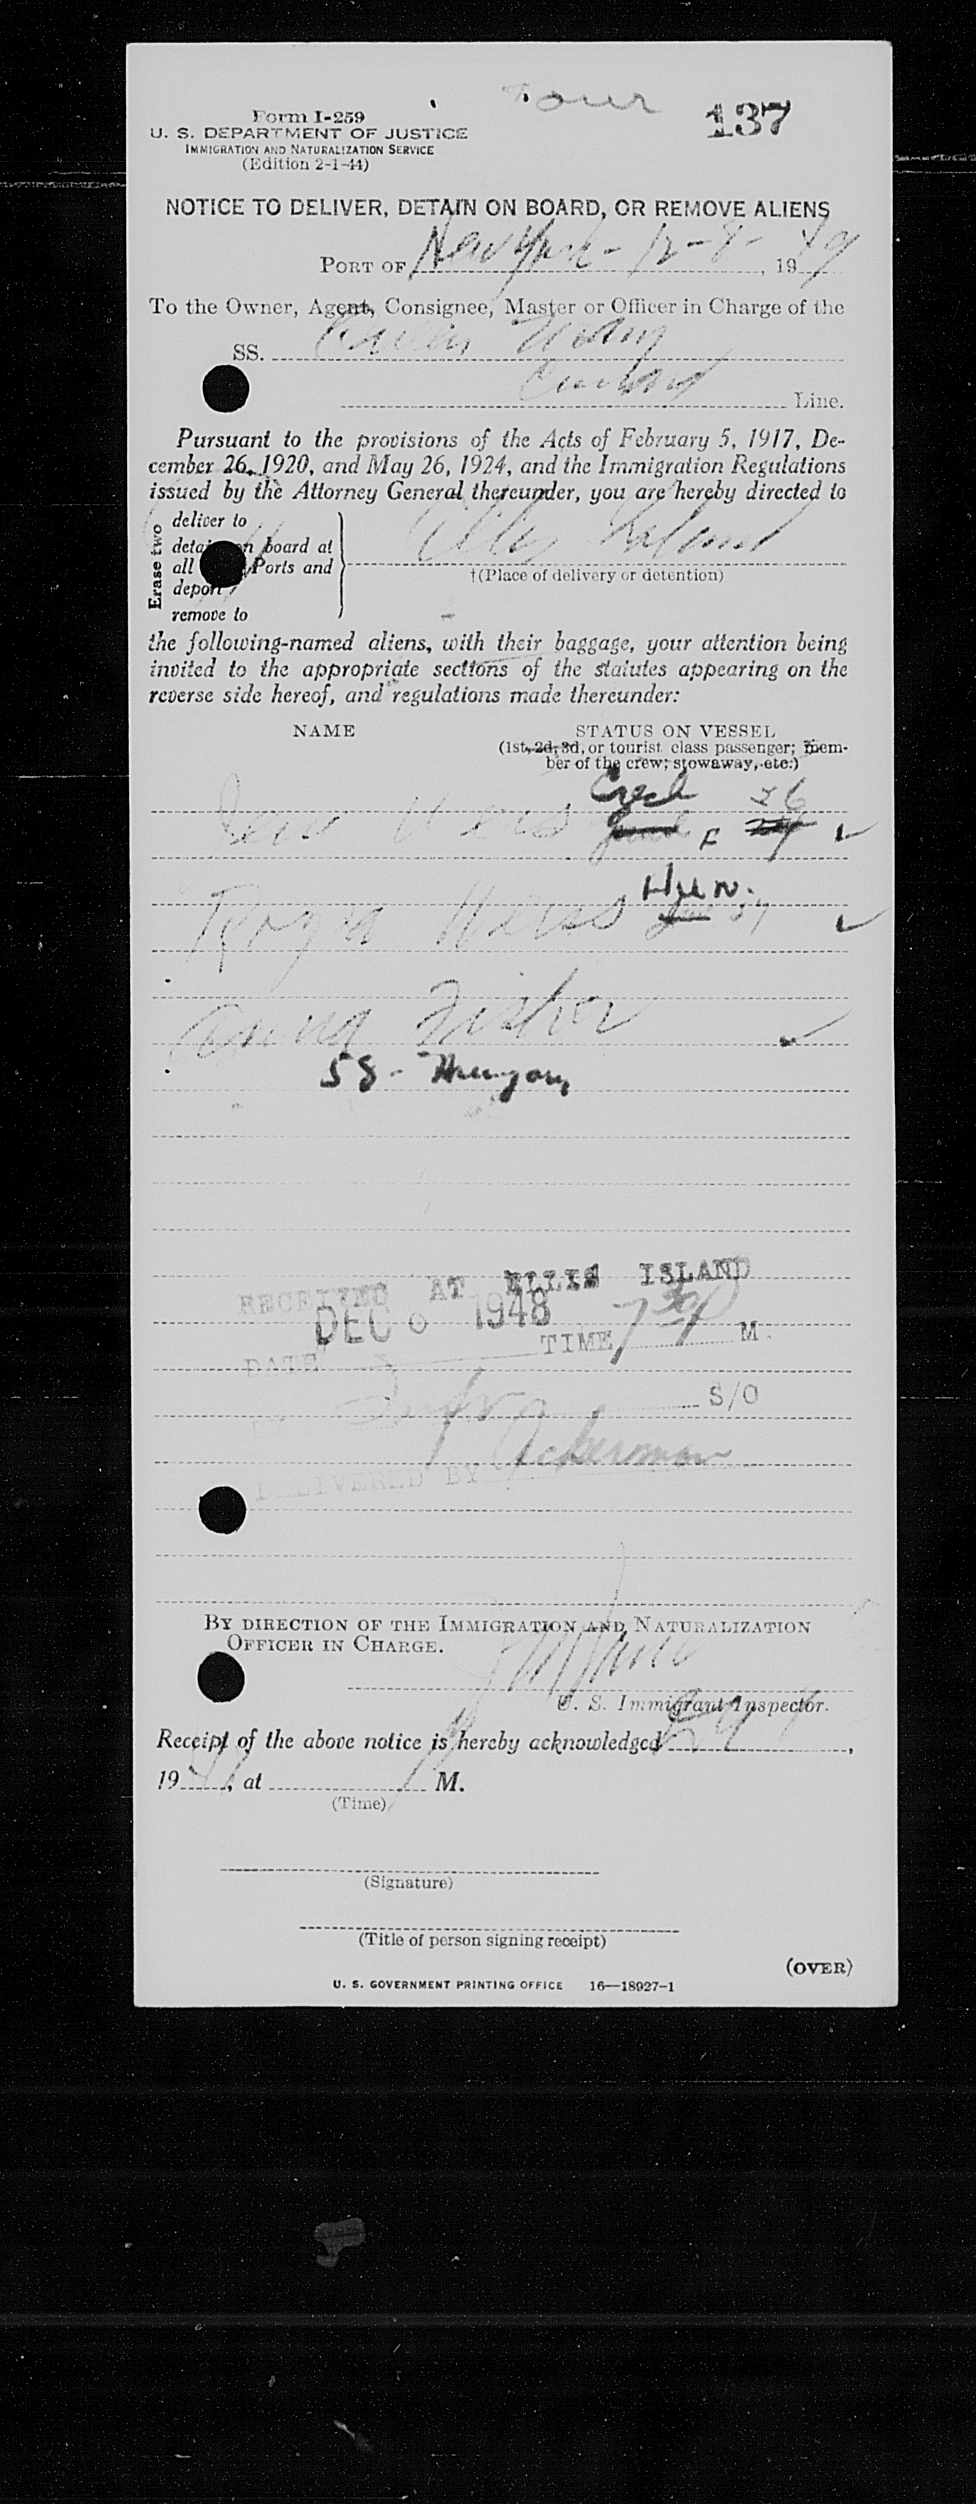 Tour 137
Form I-259
U. S. DEPARTMENT OF JUSTICE
IMMIGRATION AND NATURALIZATION SERVICE
(Edition 2-1-44)
NOTICE TO DELIVER, DETAIN ON BOARD, OR REMOVE ALIENS
PORT OF New York - 12-8-, 19
To the Owner, Agent, Consignee, Master or Officer in Charge of the
SS. Queen Mary
Cunard Line.
Pursuant to the provisions of the Acts of February 5, 1917, De-
cember 26, 1920, and May 26, 1924, and the Immigration Regulations
issued by the Attorney General thereunder, you are hereby directed to
Erase two
deliver to
detain on board at
all Ports and
deport
remove to
Ellis Island
†(Place of delivery or detention)
the following-named aliens, with their baggage, your attention being
invited to the appropriate sections of the statutes appearing on the
reverse side hereof, and regulations made thereunder:
NAME STATUS ON VESSEL
(1st, 2d, 3d, or tourist class passenger; mem-
ber of the crew; stowaway, etc.)
Czech 26
Weis F ✓
Hun.
Rozsa Weiss 57 ✓
Anna Fisher ✓
58 - Hungary
RECEIVED AT ELLIS ISLAND
DEC 1948 7 30 P
DATE TIME M.
S/O
Ackerman
DELIVERED BY
BY DIRECTION OF THE IMMIGRATION AND NATURALIZATION
OFFICER IN CHARGE.
U. S. Immigrant Inspector.
Receipt of the above notice is hereby acknowledged ,
19 , at M.
(Time)
(Signature)
(Title of person signing receipt)
(OVER)
U. S. GOVERNMENT PRINTING OFFICE 16—18927-1